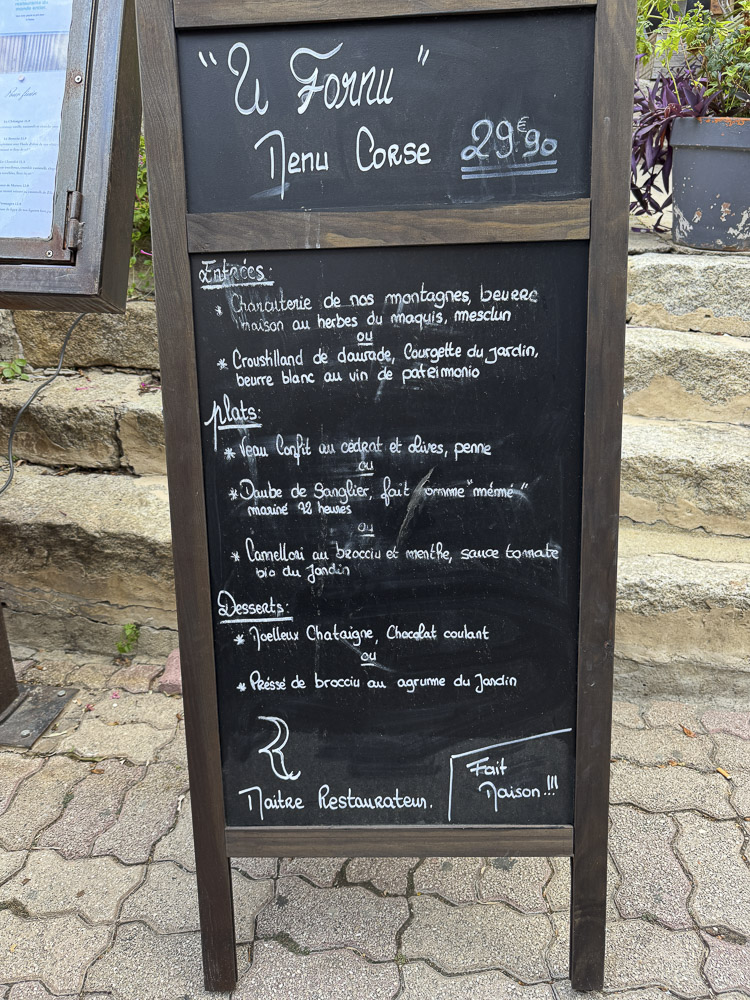 "U Fornu"
Menu Corse 29€90
Entrées:
* Charcuterie de nos montagnes, beurre
maison au herbes du maquis, mesclun
ou
* Croustilland de daurade, Courgette du jardin,
beurre blanc au vin de patrimonio
plats:
* Veau Confit au cédrat et olives, penne
ou
* Daube de Sanglier, fait omme "mémé"
mariné 92 heures
ou
* Canelloni au brocciu et menthe, sauce tomate
bio du Jardin
Desserts:
* Moelleux Chataigne, Chocolat coulant
ou
* Préssé de brocciu au agrume du Jardin
Maitre Restaurateur.
Fait
Maison!!!